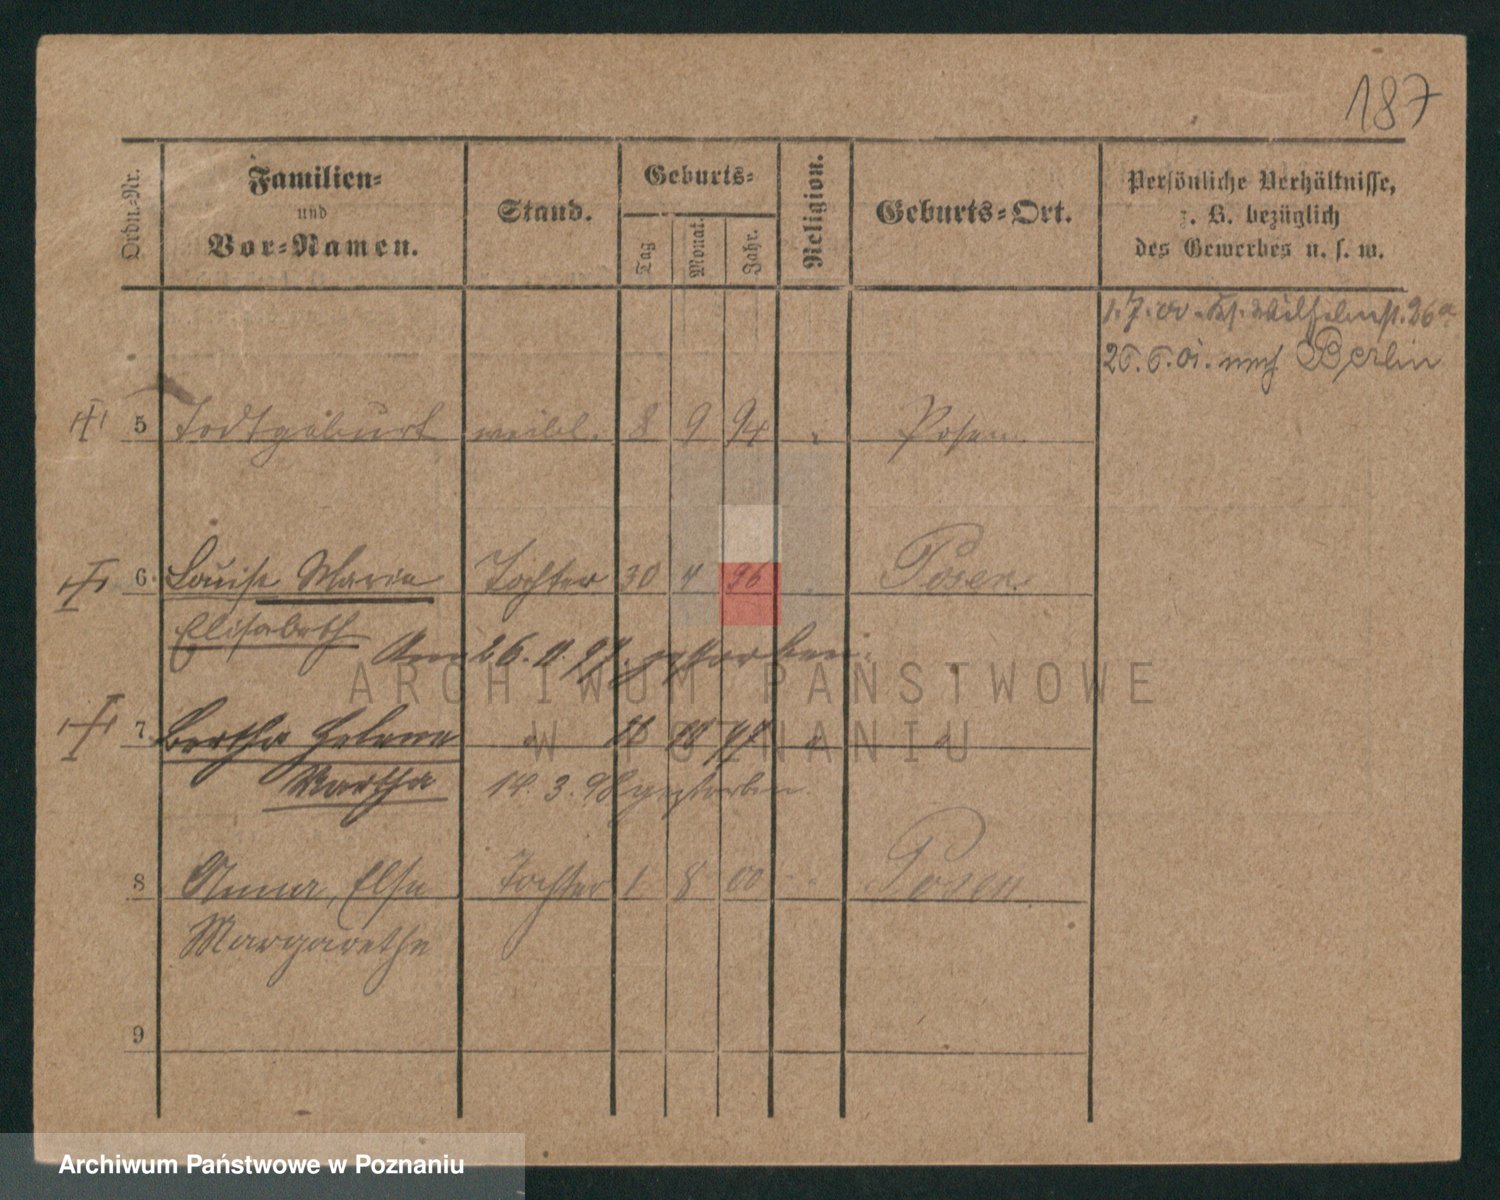 187
Ordn.-Nr.
Familien-
und
Vor-Namen.
Stand.
Geburts-
Tag
Monat.
Jahr.
Religion.
Geburts-Ort.
Persönliche Verhältnisse,
z. B. bezüglich
des Gewerbes u. s. w.
1. 7. 00. Wilhelmst. 26a
25. 5. 01. nach Berlin
5 Todtgeburt weibl. 8 9 94 Posen
6 Louise Marie Tochter 30 4 96 Posen
Elisabeth
Am 26. 11. 97. gestorben.
7 Bertha Helene " 18 97 " "
Martha 14. 3. 98 gestorben.
8 Anna, Else Tochter 1 8 00 Posen
Margarethe
9
ARCHIWUM PAŃSTWOWE
W POZNANIU
Archiwum Państwowe w Poznaniu